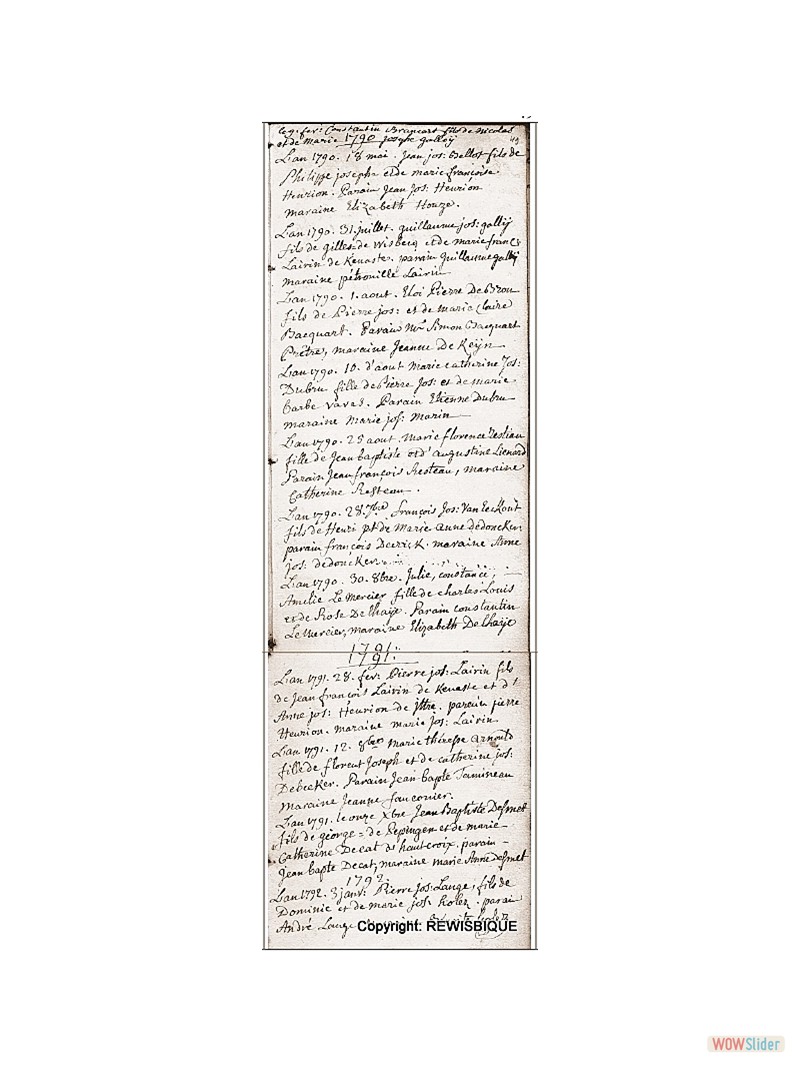 le 9. fev: Constantin Brancart fils de nicolas
et de Marie 1790 joseph galloÿ
L'an 1790. 18 mai. Jean jos: Bellot fils de
Philippe joseph et de marie françoise
Heurion. Parain Jean Jos: Heurion
maraine Elizabeth Houze.
L'an 1790. 31. juillet. guillaume jos: gallij
fils de gilles de Wisbecq et de marie franç:
Lairin de Kenaste. parain guillaume gallij
maraine pétronille Lairin
L'an 1790. 1. aout. Eloi Pierre De Bron
fils de Pierre jos: et de marie Claire
Bacquart. Parain Mr Simon Bacquart
Prêtre, maraine Jeanne De Keÿn
L'an 1790. 10. d'aout Marie catherine Jos:
Dubru fille de Pierre Jos: et de marie
barbe . Parain Etienne Dubru
maraine Marie jos: Marin
L'an 1790. 25 aout. Marie florence Resteau
fille de Jean baptiste et d'augustine Lienard
Parain Jean françois Resteau, maraine
Catherine Resteau.
L'an 1790. 28. 7bre françois Jos: Van Eeckout
fils de Henri et de Marie anne dedoncker
parain françois Deerick. maraine Anne
jos: dedoncker
L'an 1790. 30. 8bre. Julie, constance,
Amélie Le Mercier fille de charles Louis
et de Rose Delhaÿe. Parain constantin
Le Mercier, maraine Elizabeth Delhaÿe
1791:
L'an 1791. 28. fev: Pierre jos: Lairin fils
de Jean françois Lairin de Kenaste et d'
Anne jos: Heurion de jttre. parain pierre
Heurion. maraine marie jos: Lairin
L'an 1791. 12. 8bre marie thérèse arnould
fille de florent Joseph et de catherine jos:
Debecker. Parain Jean bapte Tamineau
Maraine Jeanne fauconier.
L'an 1791. le onze Xbre Jean Baptiste Desmet
fils de george de Pepingen et de marie
Catherine Decat d'hautcroix. parain
Jean bapte Decat, maraine marie Anne Desmet
1792
L'an 1792. 3 janv: Pierre jos: Lange, fils de
Dominic et de marie jos: . parain
André Lange
Copyright: REWISBIQUE
WOWSlider